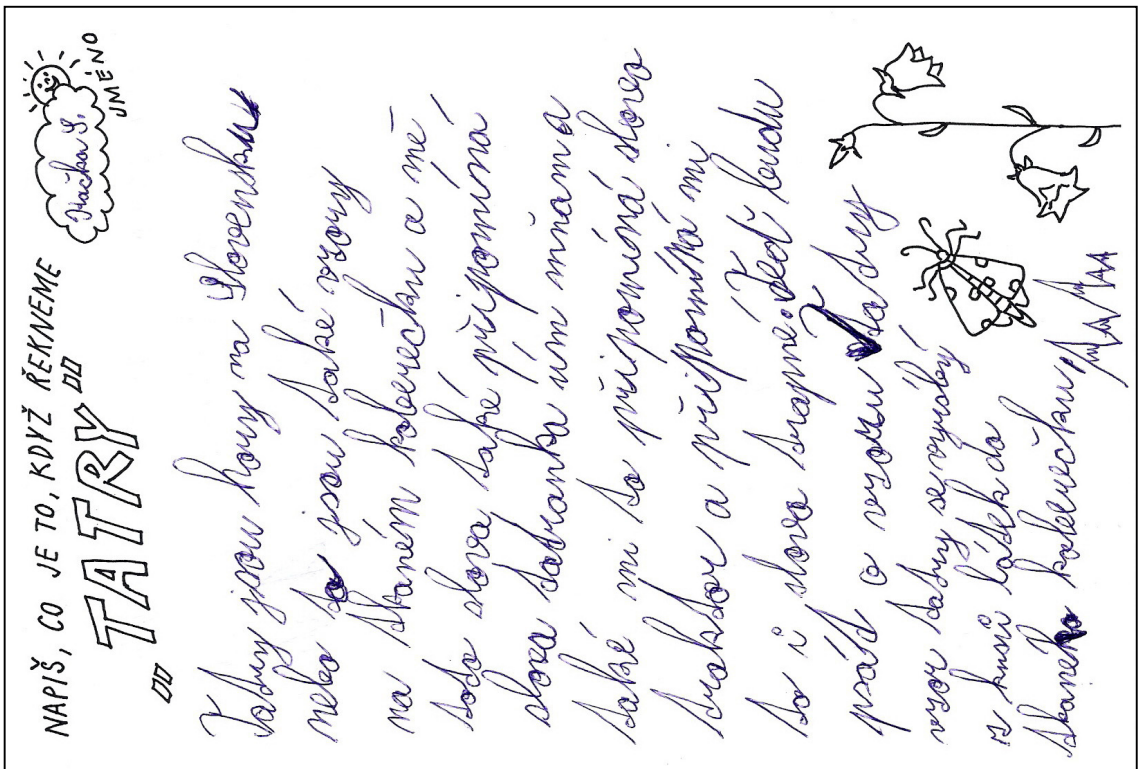 NAPIŠ, CO JE TO, KDYŽ ŘEKNEME
"TATRY"
JMÉNO
Tatry jsou hory na Slovensku
nebo to jsou také vzory
na tkaném koberečku a mě
toto slova také připomíná
slova tatranka úm mňam a
také mi to připomíná slovo
traktor a připomíná mi
to i slova trapné. Teď budu
psát o vzoru Tatry
vzor tatry se vyrábý
z kusů látek do
tkaneho koberečku,